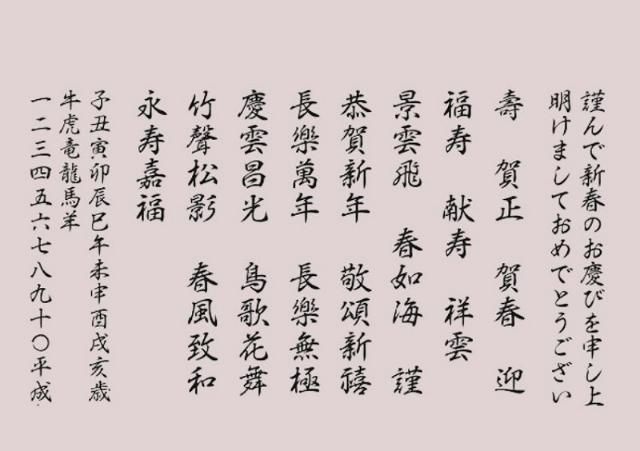 謹んで新春のお慶びを申し上
明けましておめでとうござい
壽 賀正 賀春 迎
福寿 献寿 祥雲
景雲飛 春如海 謹
恭賀新年 敬頌新禧
長樂萬年 長樂無極
慶雲昌光 鳥歌花舞
竹聲松影 春風致和
永寿嘉福
子丑寅卯辰巳午未申酉戌亥歳
牛虎竜龍馬羊
一二三四五六七八九十〇平成